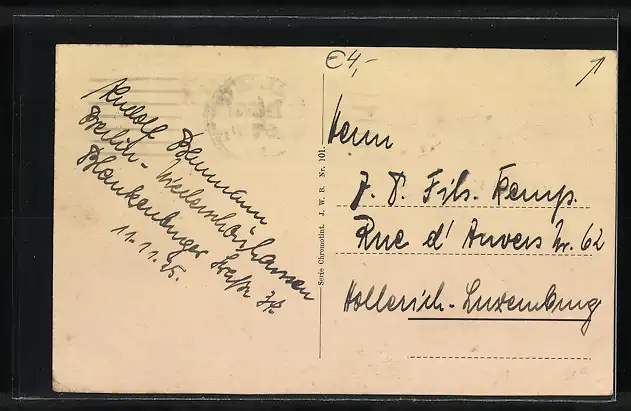 €4,-
Rudolf Baumann
Berlin - Niederschönhausen
Blankenburger Straße
11.11.25.
Serie Chromotint. J. W. B. Nr. 101.
Herrn
J. P. Fils. Kemp.
Rue d' Anvers Nr. 62
Hollerich - Luxemburg